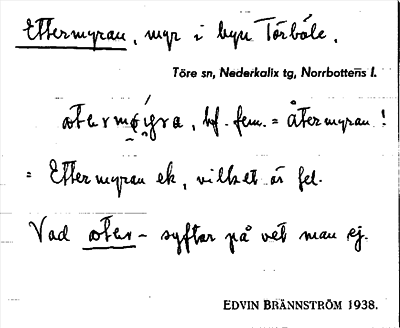 Ettermyran, myr i byn Törböle.
Töre sn, Nederkalix tg, Norrbottens l.
bf. fem. = återmyran!
= Ettermyran ek, vilket är fel.
Vad åter- syftar på vet man ej.
EDVIN BRÄNNSTRÖM 1938.